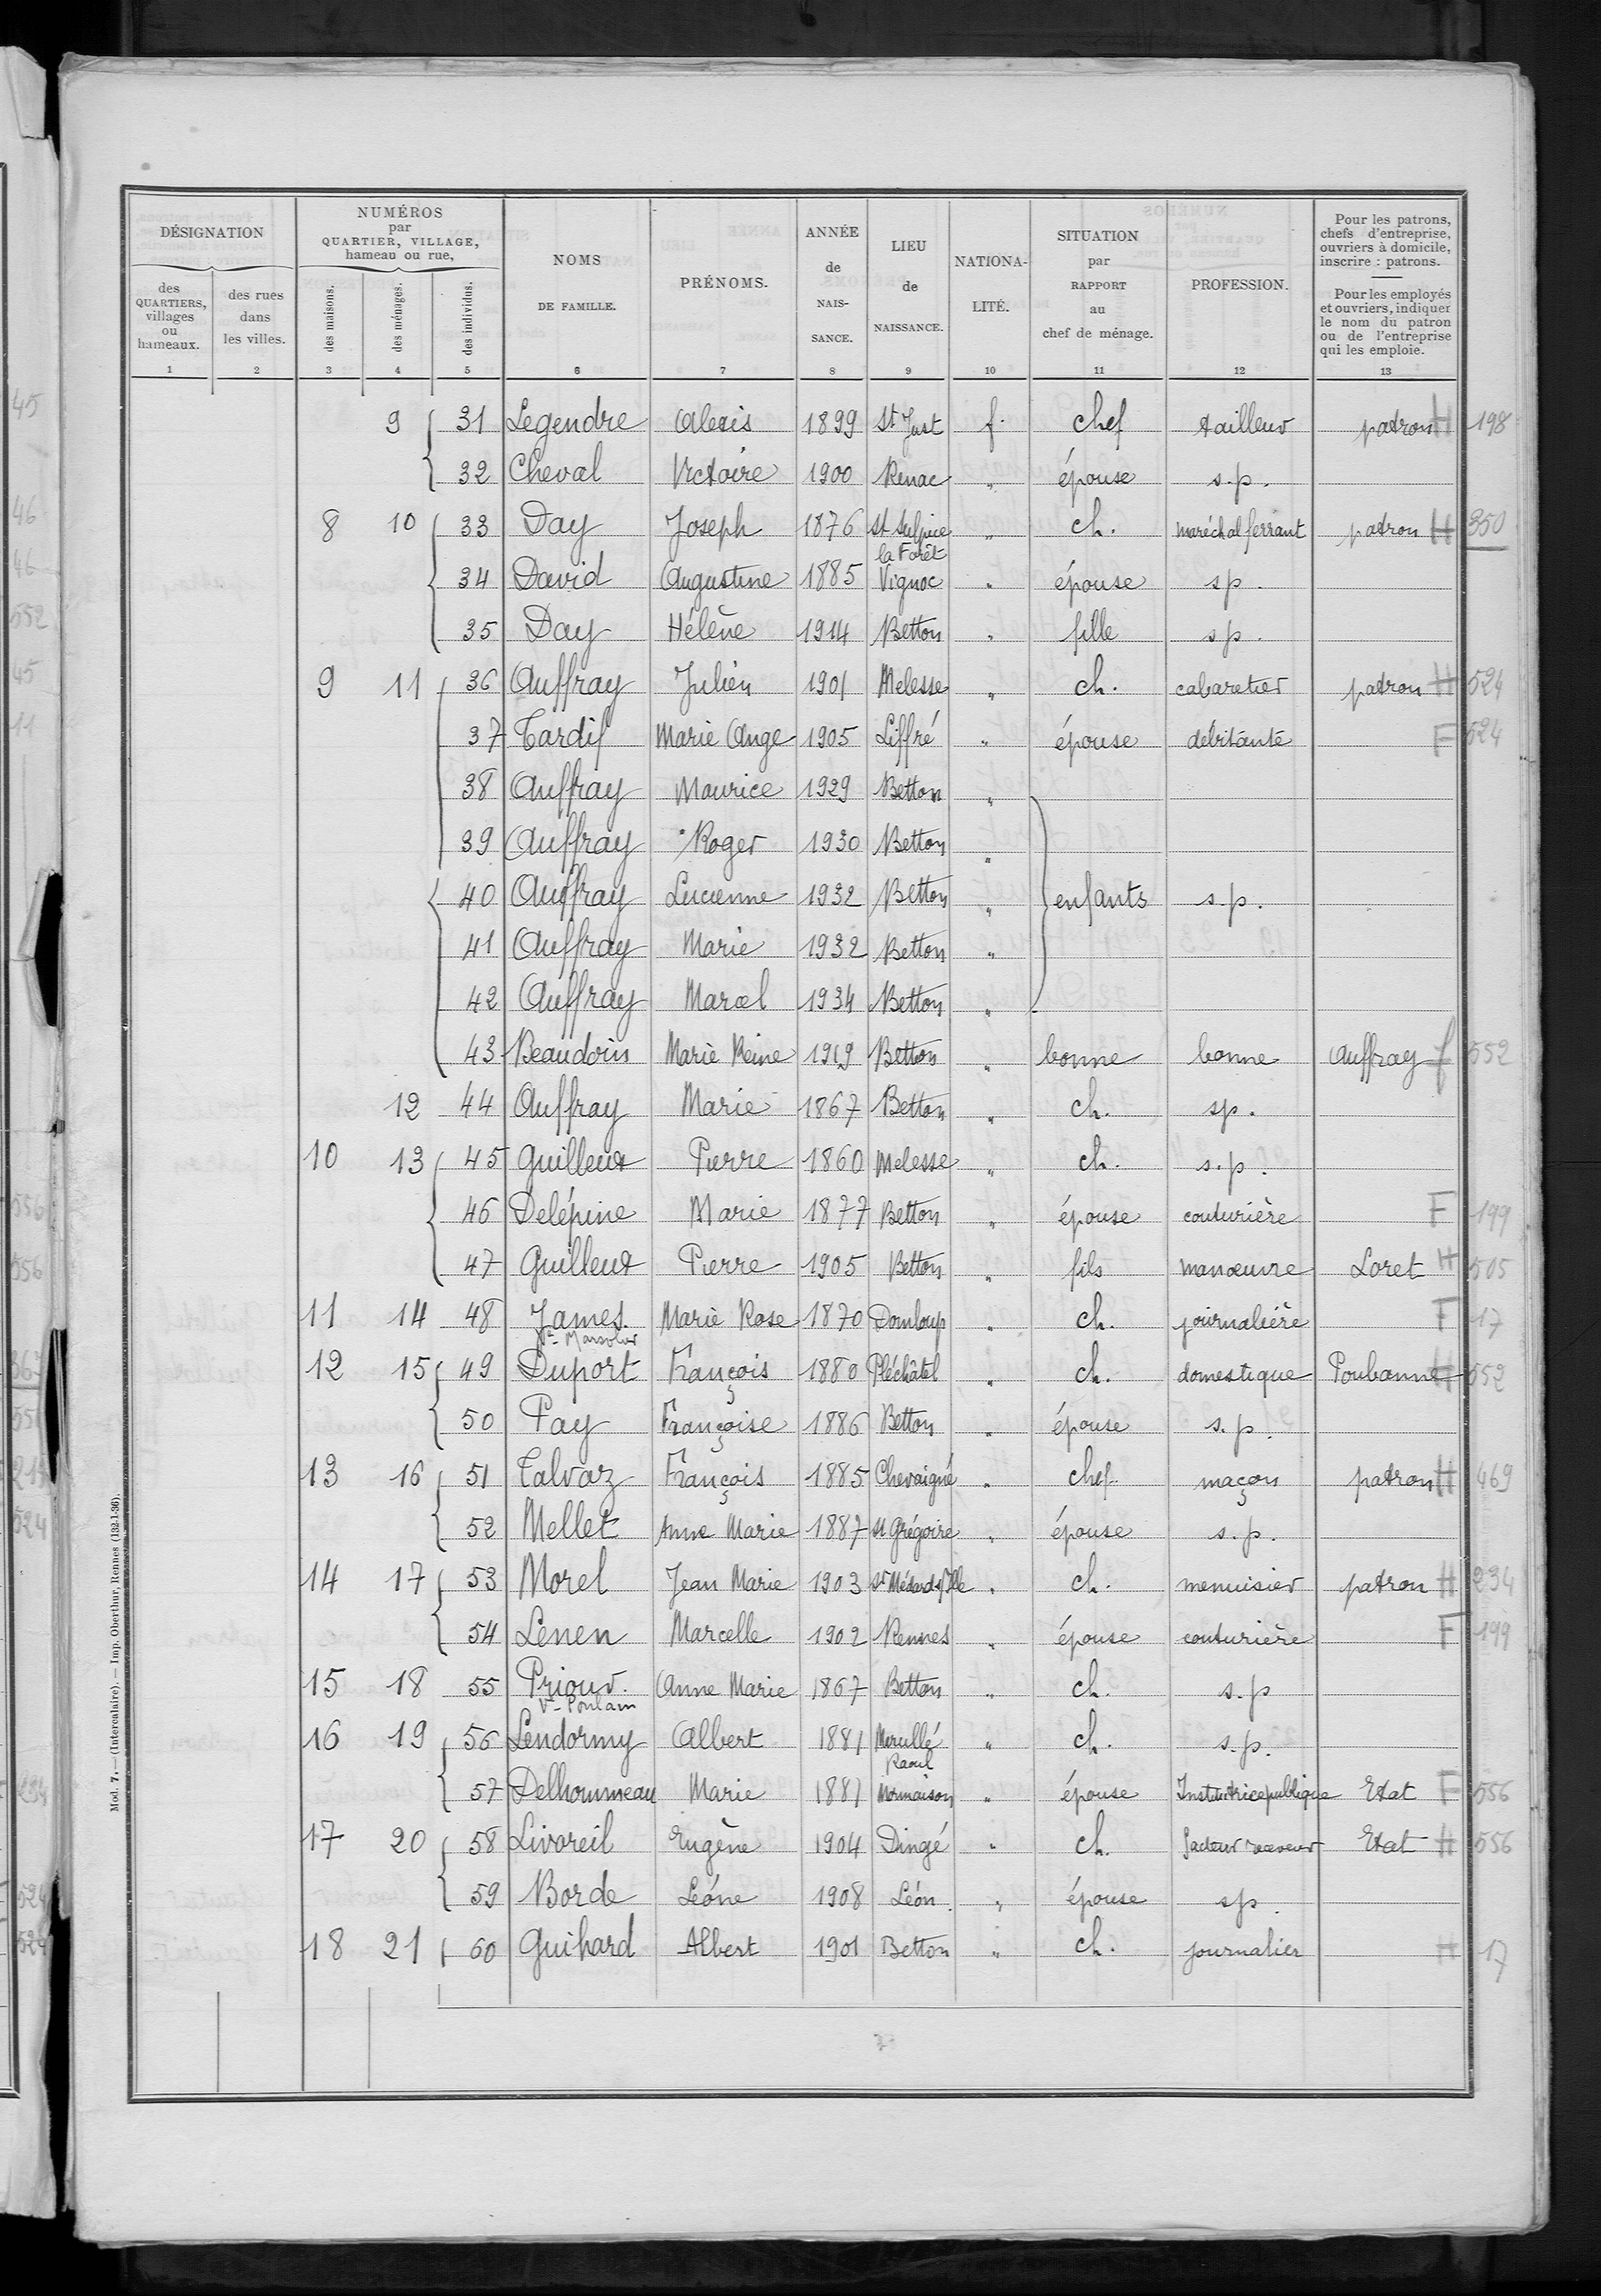 DÉSIGNATION
des QUARTIERS, villages ou hameaux.
des rues dans les villes.
NUMÉROS par QUARTIER, VILLAGE, hameau ou rue,
des maisons.
des ménages.
des individus.
NOMS DE FAMILLE.
PRÉNOMS.
ANNÉE de NAIS-SANCE.
LIEU de NAISSANCE.
NATIONA-LITÉ.
SITUATION par RAPPORT au chef de ménage.
PROFESSION.
Pour les patrons, chefs d'entreprise, ouvriers à domicile, inscrire : patrons.
Pour les employés et ouvriers, indiquer le nom du patron ou de l'entreprise qui les emploie.
1 2 3 4 5 6 7 8 9 10 11 12 13
9 31 Legendre Alexis 1899 St Just f. chef tailleur patron H 198
32 Cheval Victoire 1900 Renac " épouse s.p.
8 10 33 Day Joseph 1876 St Sulpice la Forêt " ch. maréchal ferrant patron H 350
34 David Augustine 1885 Vignoc " épouse sp.
35 Day Hélène 1914 Betton " fille sp.
9 11 36 Auffray Julien 1901 Melesse " ch. cabaretier patron H 524
37 Tardif Marie Ange 1905 Liffré " épouse débitante F 524
38 Auffray Maurice 1929 Betton "
39 Auffray Roger 1930 Betton "
40 Auffray Lucienne 1932 Betton " enfants s.p.
41 Auffray Marie 1932 Betton "
42 Auffray Marcel 1934 Betton "
43 Beaudoin Marie Reine 1919 Betton " bonne bonne Auffray f 552
12 44 Auffray Marie 1867 Betton " ch. sp.
10 13 45 Guilleux Pierre 1860 Melesse " ch. s.p.
46 Delépine Marie 1877 Betton " épouse couturière F 199
47 Guilleux Pierre 1905 Betton " fils manœuvre Loret H 505
11 14 48 James Marie Rose 1870 Domloup " ch. journalière F 17
Ve
12 15 49 Duport François 1880 Pléchâtel " ch. domestique Poubanne H 552
50 Pay Françoise 1886 Betton " épouse s.p.
13 16 51 Talvaz François 1885 Chevaigné " chef maçon patron H 469
52 Mellet Anne Marie 1887 St Grégoire " épouse s.p.
14 17 53 Morel Jean Marie 1903 St Médard s/Ille " ch. menuisier patron H 234
54 Lenen Marcelle 1902 Rennes " épouse couturière F 199
15 18 55 Priour Anne Marie 1867 Betton " ch. s.p
Ve Poulain
16 19 56 Lendormy Albert 1881 Marcillé Raoul " ch. s.p.
57 Delhoumeau Marie 1881 " épouse Institutrice publique Etat F 556
17 20 58 Livoreil Eugène 1904 Dingé " ch. facteur receveur Etat H 556
59 Borde Léone 1908 Léon " épouse sp.
18 21 60 Guihard Albert 1901 Betton " ch. journalier H 17
Mod. 7. — (Intercalaire). — Imp. Oberthur, Rennes (132-1-36).
45
46
46
552
45
11
556
556
367
524
234
524
524